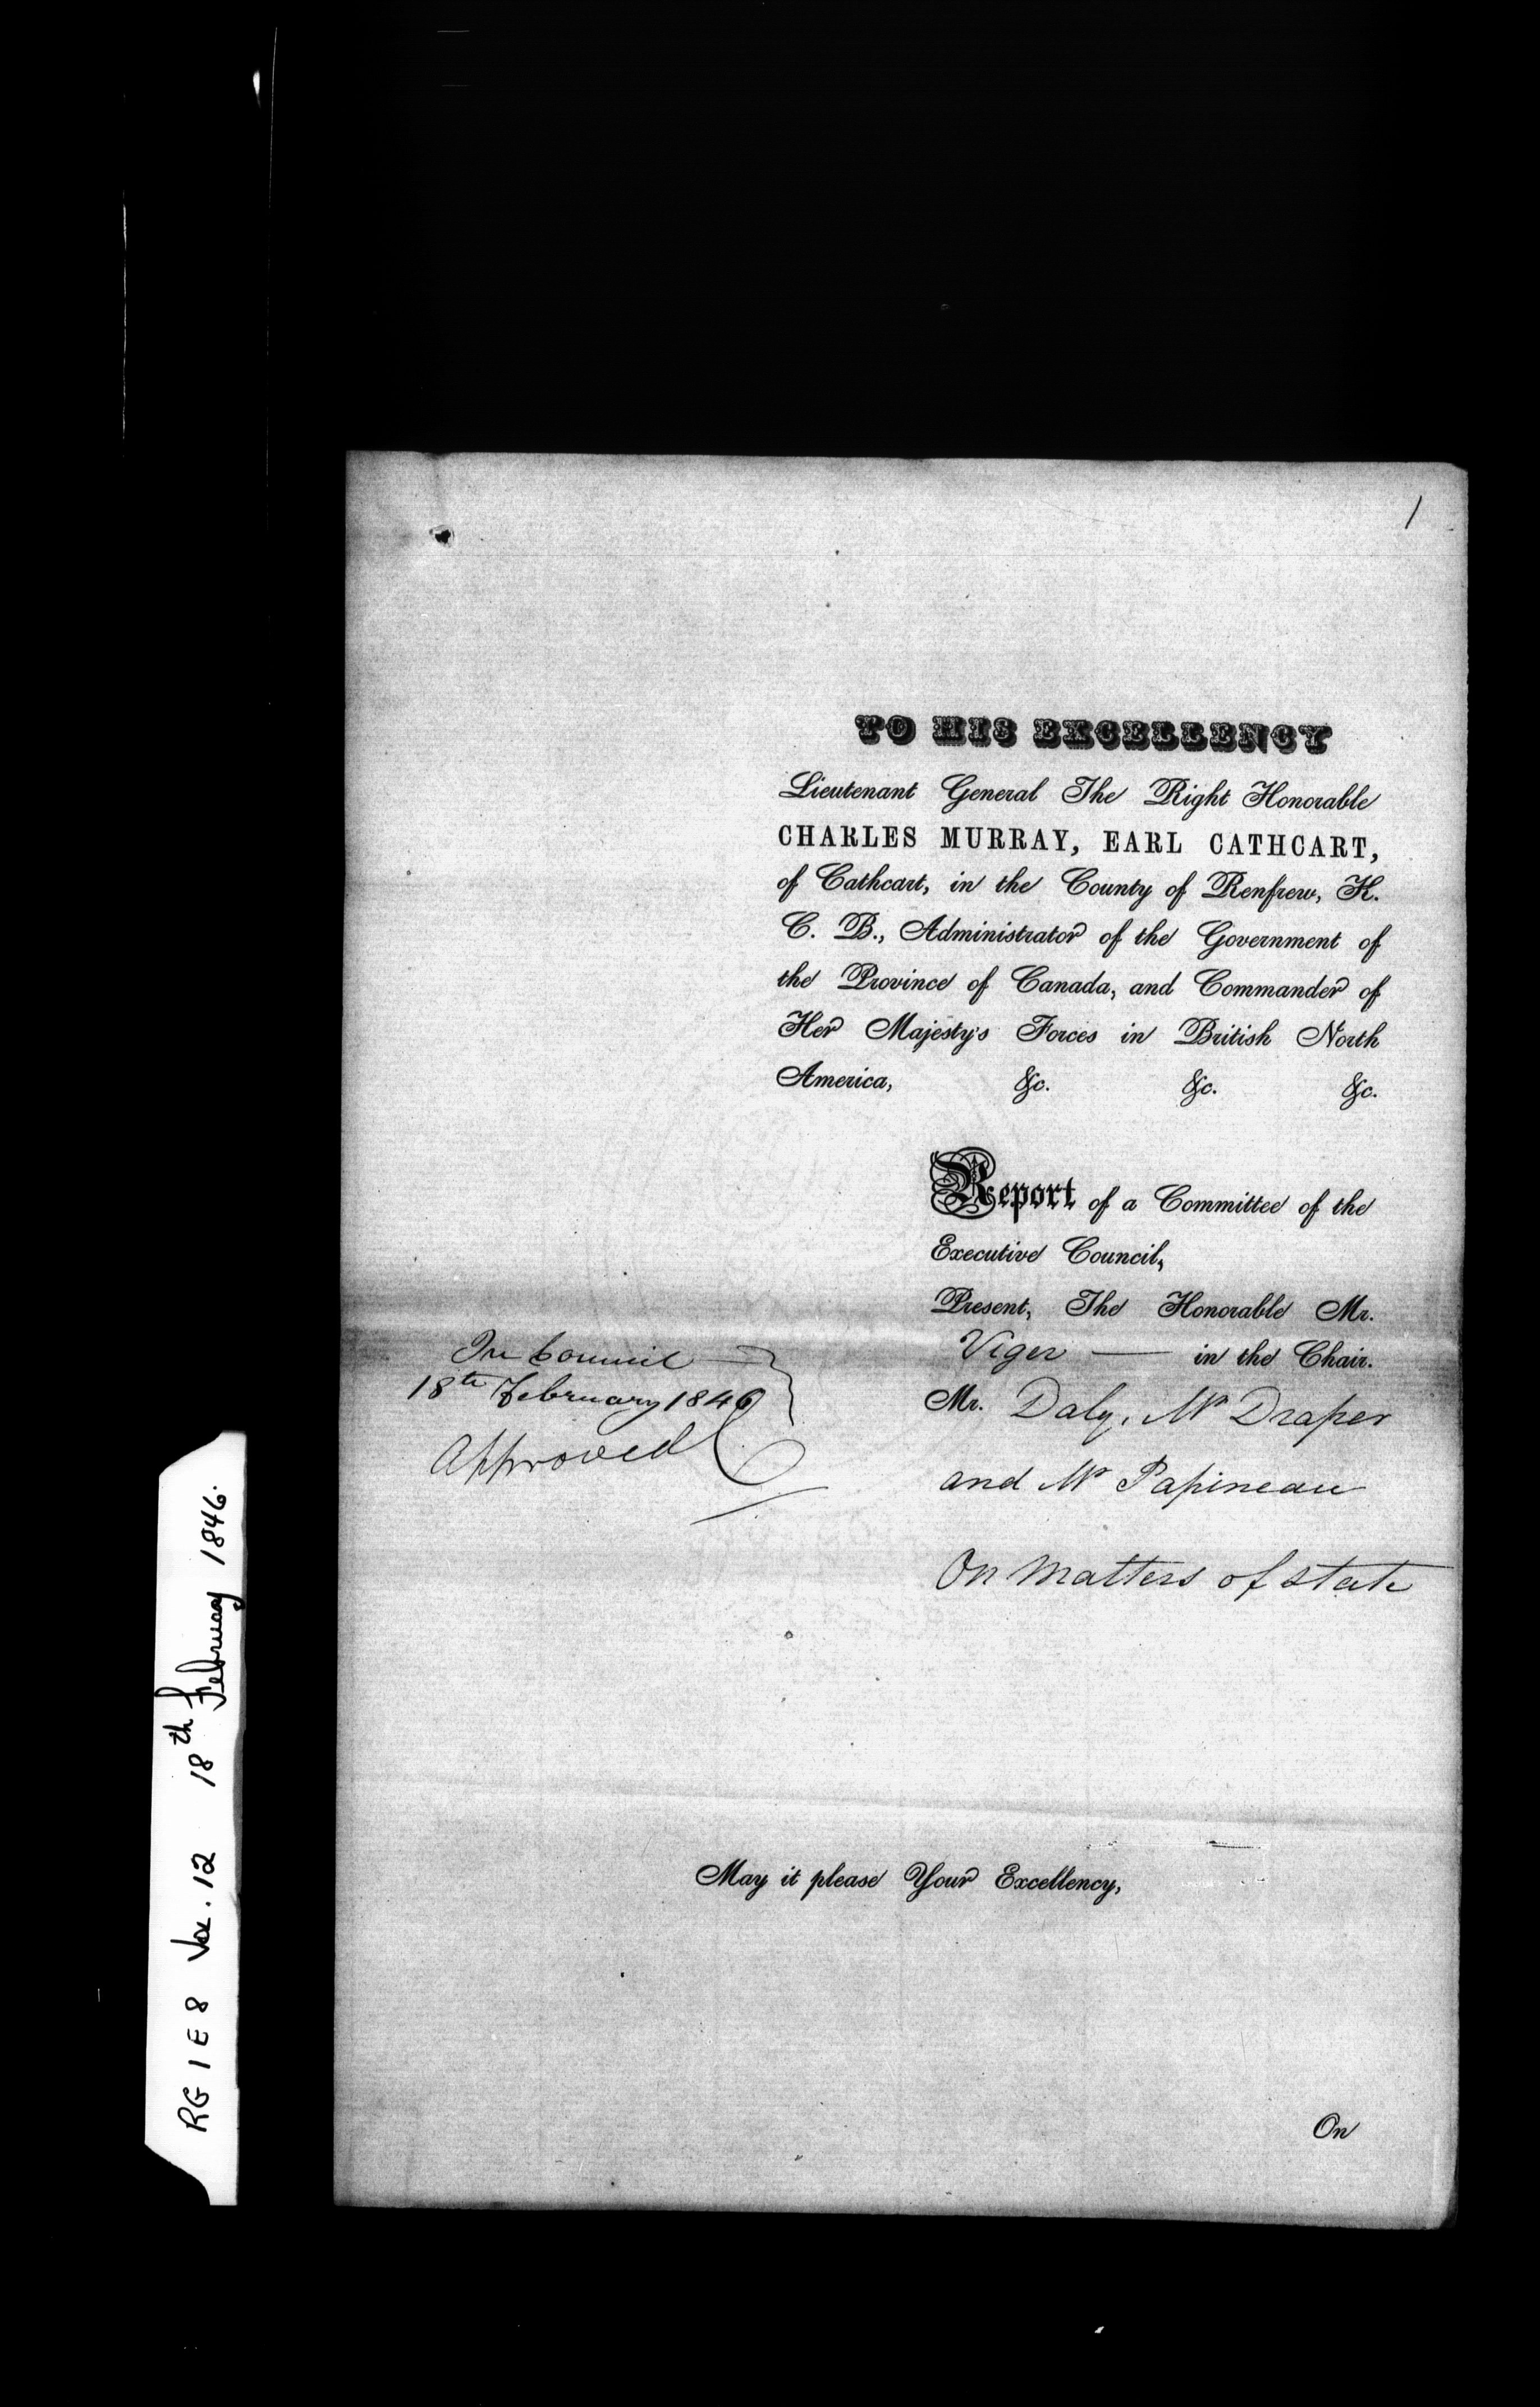 1
TO HIS EXCELLENCY
Lieutenant General The Right Honorable
CHARLES MURRAY, EARL CATHCART,
of Cathcart, in the County of Renfrew, K.
C. B., Administrator of the Government of
the Province of Canada, and Commander of
Her Majesty's Forces in British North
America, &c. &c. &c.
Report of a Committee of the
Executive Council,
Present, The Honorable Mr.
Viger — in the Chair.
Mr. Daly, Mr Draper
and Mr Papineau
On Matters of State
In Council
18th February 1846
Approved
May it please Your Excellency,
On
RG 1 E 8 Vol. 12 18th February 1846.